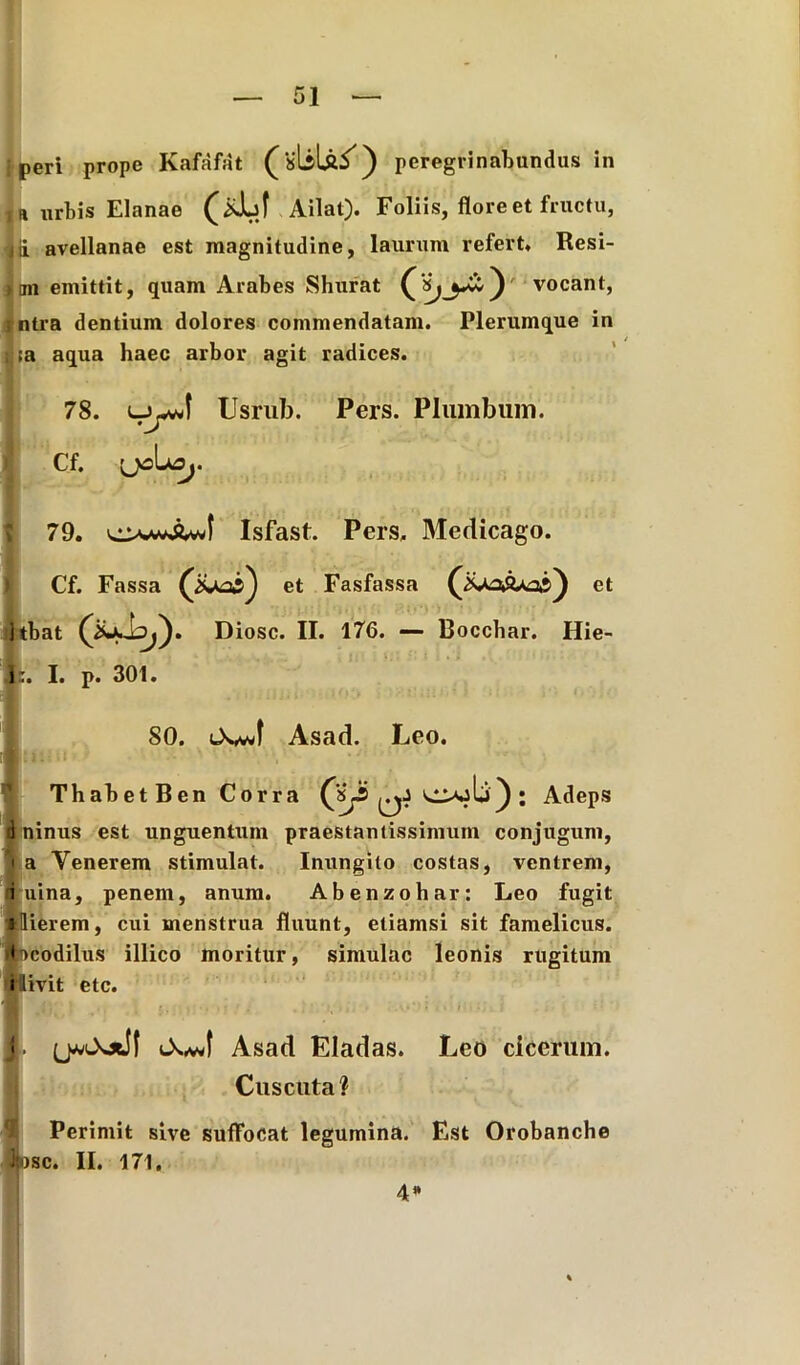 — 51 —
peri prope Kafáfát (كفافاة) peregrinabundus in
a urbis Elanae (ايلة Ailat). Foliis, flore et fructu,
i avellanae est magnitudine, laurum refert. Resi-
m emittit, quam Arabes Shurat (شورة) vocant,
ntra dentium dolores commendatam. Plerumque in
sa aqua haec arbor agit radices.
78. اسرب Usrub. Pers. Plumbum.
Cf. رصاص.
79. اسفست Isfast. Pers. Medicago.
Cf. Fassa (فصة) et Fasfassa (فصفصة) et
tbat (رطبة). Diosc. II. 176. — Bocchar. Hie-
I. p. 301.
80. اسد Asad. Leo.
Thabet Ben Corra (ثابت بن قرة): Adeps
ninus est unguentum praestantissimum conjugum,
a Venerem stimulat. Inungito costas, ventrem,
uina, penem, anum. Abenzohar: Leo fugit
lierem, cui menstrua fluunt, etiamsi sit famelicus.
ocodilus illico moritur, simulac leonis rugitum
ivit etc.
اسد العدس Asad Eladas. Leo cicerum.
Cuscuta?
Perimit sive suffocat legumina. Est Orobanche
osc. II. 171.
4*